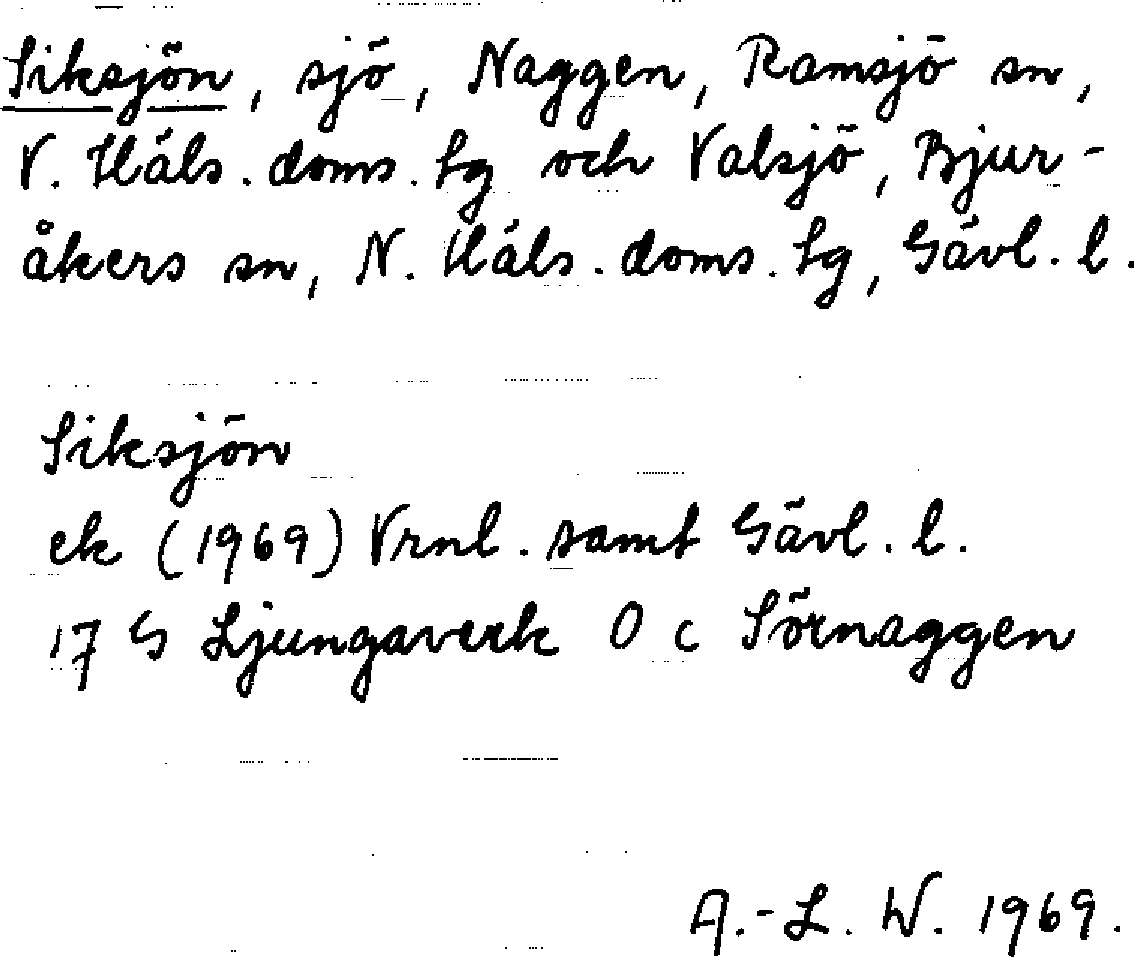 Siksjön, sjö, Naggen, Ramsjö sn,
V. Häls. doms. lg och Valsjö, Bjur-
åkers sn, N. Häls. doms. lg, Gävl. l.
Siksjön
ek (1969) Vrnl. samt Gävl. l.
17 G Ljungaverk O c Sörnaggen
A.-L. W. 1969.